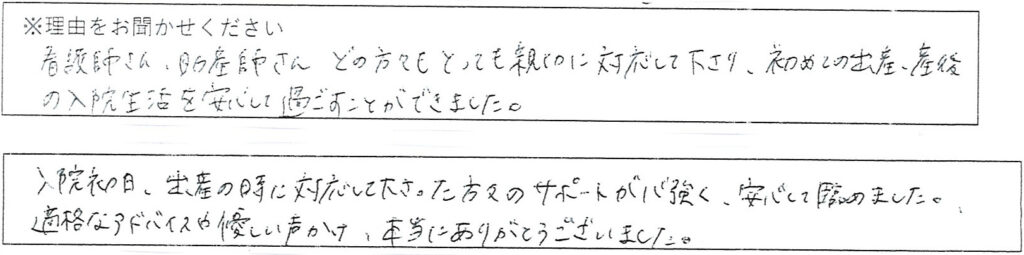 ※理由をお聞かせください
看護師さん、助産師さん どの方々もとっても親切に対応して下さり、初めての出産、産後
の入院生活を安心して過ごすことができました。
入院初日、出産の時に対応して下さった方々のサポートが心強く、安心して臨めました。
適格なアドバイスや優しい声かけ、本当にありがとうございました。